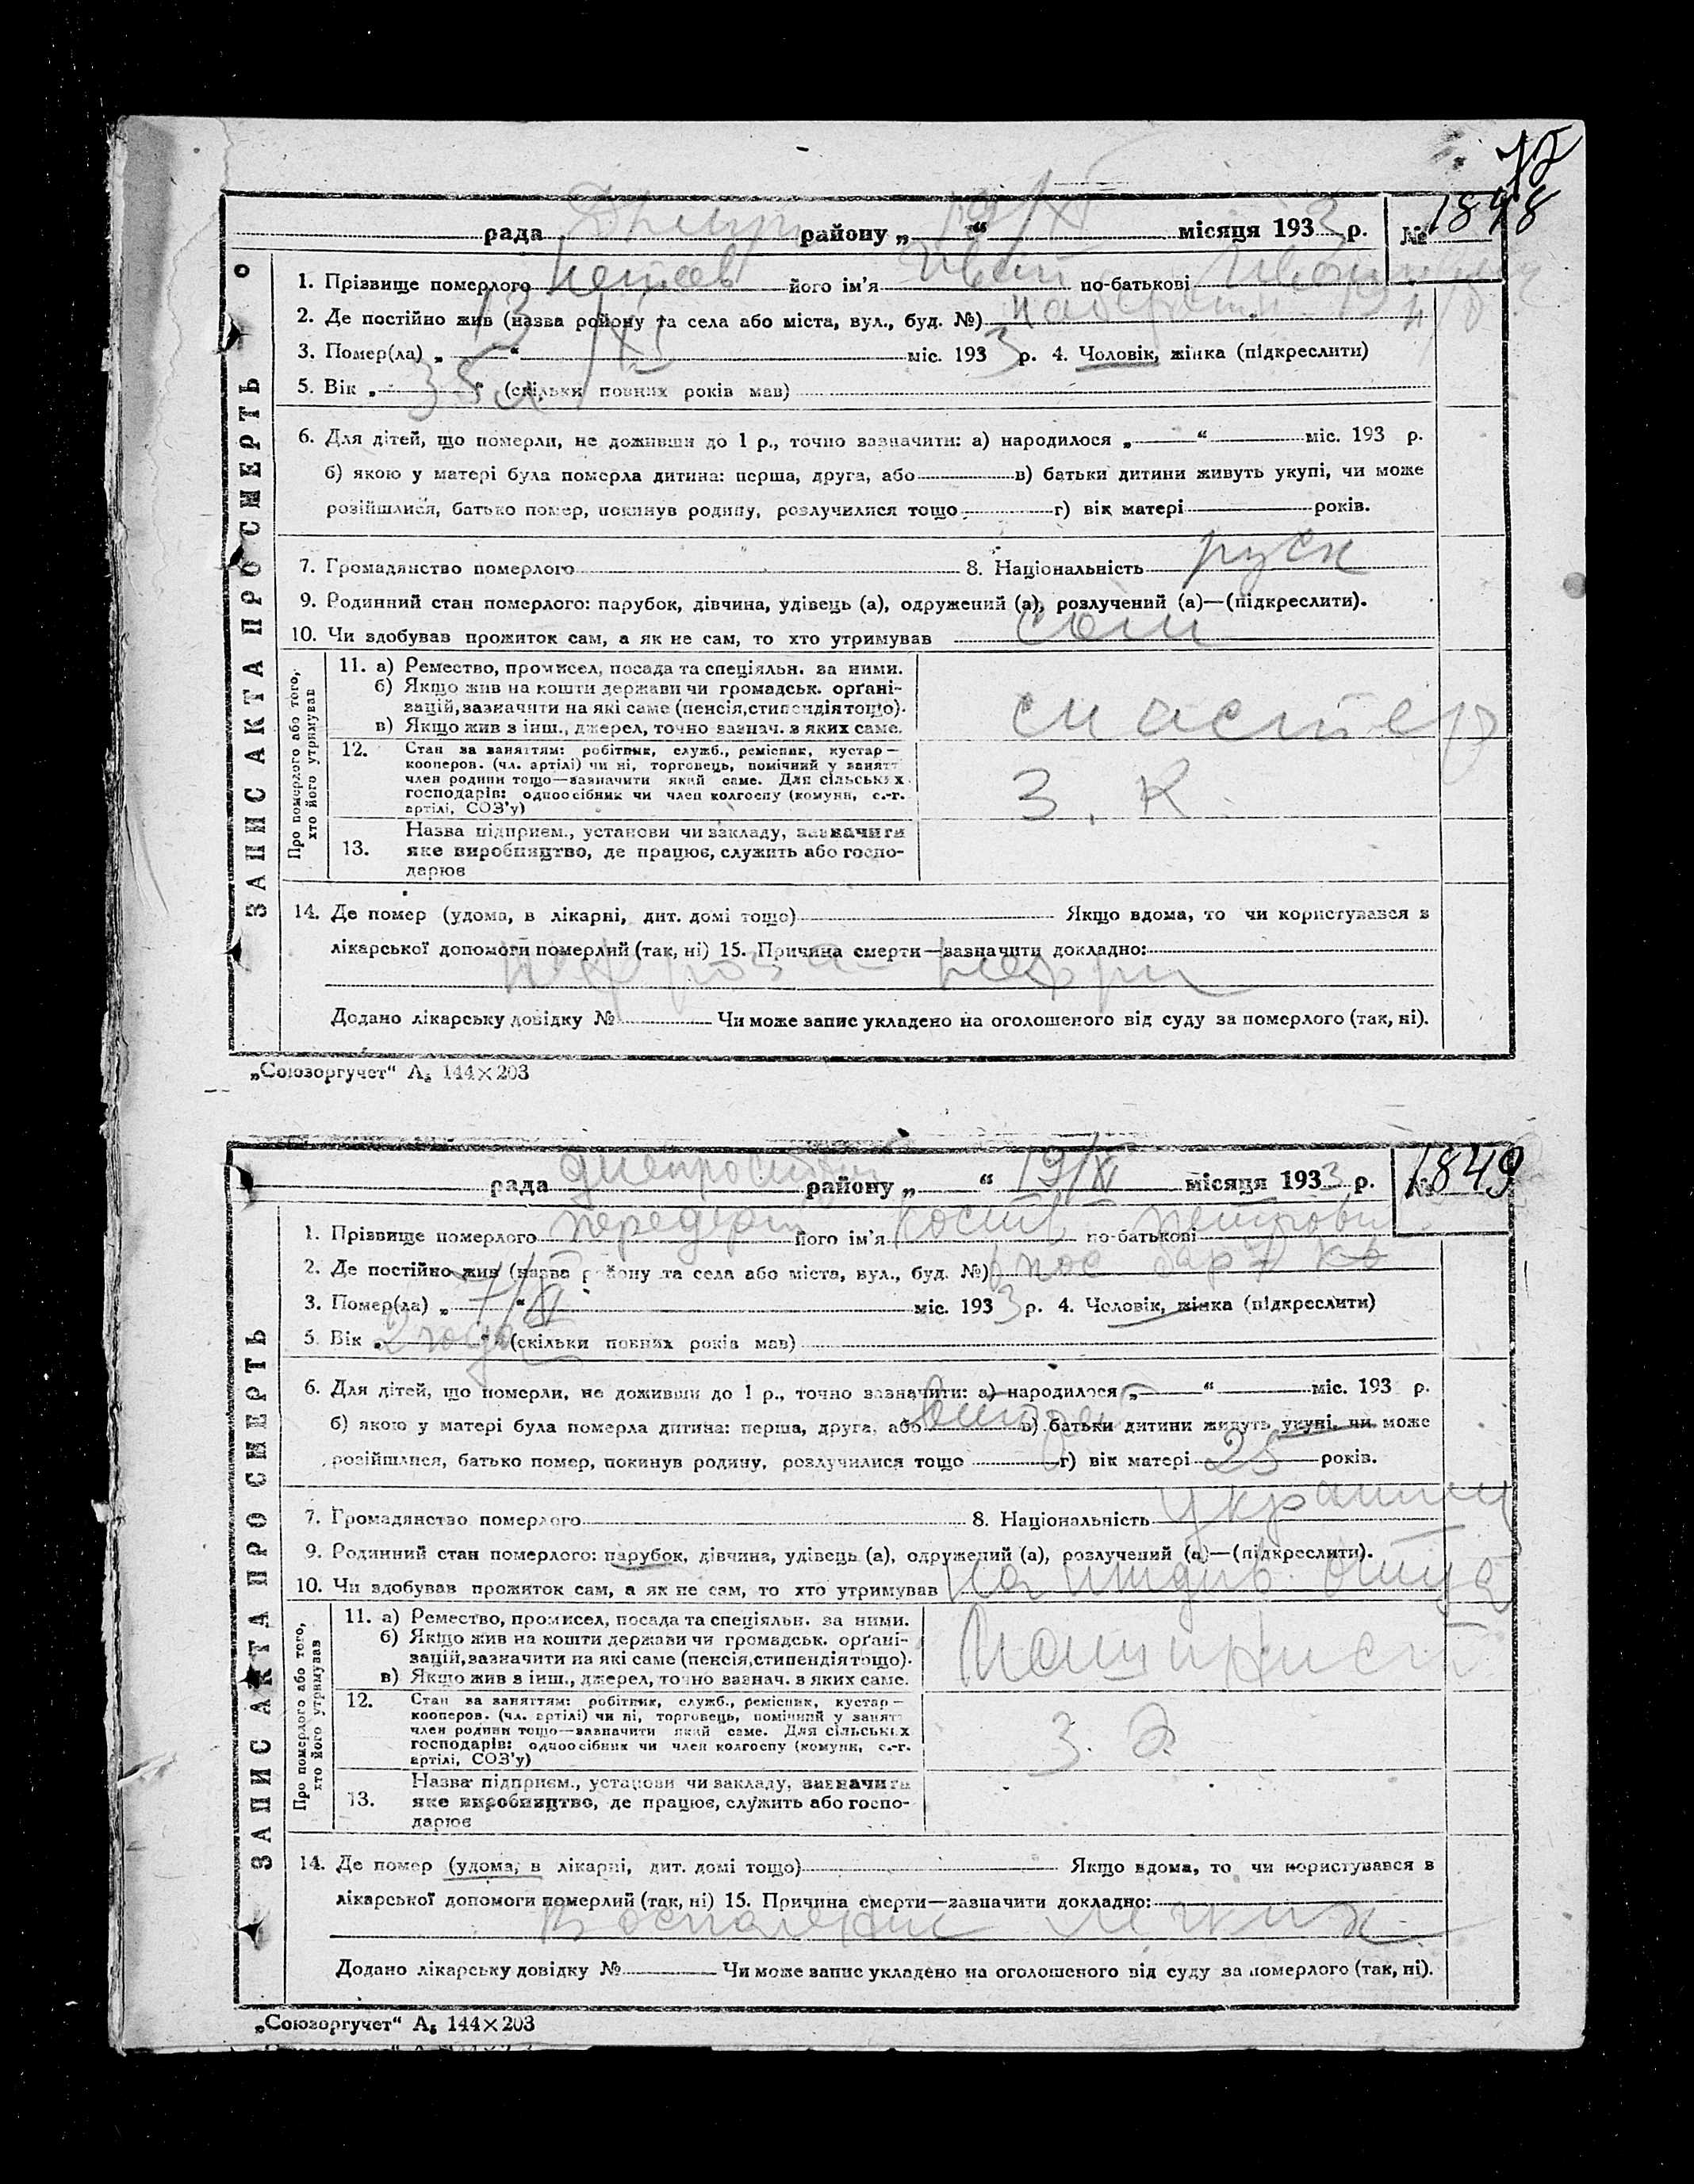 1848
рада Днепр району „ 19/XI “ місяця 1933 р. №
1. Прізвище померлого його ім’я Иван по-батькові
2. Де постійно жив (назва району та села або міста, вул., буд. №)
3. Помер(ла) „ 13/XI “ міс. 1933 р. 4. Чоловік, жінка (підкреслити)
5. Вік „ 35 “ (скільки повних років мав)
6. Для дітей, що померли, не доживши до 1 р., точно зазначити: а) народилося „ “ міс. 193 р.
б) якою у матері була померла дитина: перша, друга, або в) батьки дитини живуть укупі, чи може
розійшлися, батько помер, покинув родину, розлучилися тощо г) вік матері років.
7. Громадянство померлого 8. Національність руск
9. Родинний стан померлого: парубок, дівчина, удівець (а), одружений (а), розлучений (а)—(підкреслити).
10. Чи здобував прожиток сам, а як не сам, то хто утримував сам
Про померлого або того, хто його утримував
11. а) Ремество, промисел, посада та спеціяльн. за ними.
б) Якщо жив на кошти держави чи громадськ. орґані-
зацій, зазначити на які саме (пенсія, стипендія тощо).
в) Якщо жив з інш., джерел, точно зазнач. з яких саме.
12. Стан за заняттям: робітник, служб., ремісник, кустар—
кооперов. (чл. артілі) чи ні, торговець, помічний у занятт
член родини тощо—зазначити який саме. Для сільських
господарів: одноосібник чи член колгоспу (комуни, с.-г.
артілі, СОЗ’у)
З. К.
Назва підприєм., установи чи закладу, зазначити
13. яке виробництво, де працює, служить або госпо-
дарює
14. Де помер (удома, в лікарні, дит. домі тощо) Якщо вдома, то чи користувався в
лікарської допомоги померлий (так, ні) 15. Причина смерти—зазначити докладно:
Додано лікарську довідку № Чи може запис укладено на оголошеного від суду за померлого (так, ні).
ЗАПИС АКТА ПРО СМЕРТЬ
„Союзоргучет“ А₅ 144×203
рада району „ “ 19/XI місяця 1933 р. № 1849
1. Прізвище померлого його ім’я по-батькові
2. Де постійно жив (назва району та села або міста, вул., буд. №)
3. Помер(ла) „ 7/XI “ міс. 1933 р. 4. Чоловік, жінка (підкреслити)
5. Вік „ 2 года “ (скільки повних років мав)
6. Для дітей, що померли, не доживши до 1 р., точно зазначити: а) народилося „ “ міс. 193 р.
б) якою у матері була померла дитина: перша, друга, або в) батьки дитини живуть укупі, чи може
розійшлися, батько помер, покинув родину, розлучилися тощо г) вік матері 25 років.
7. Громадянство померлого 8. Національність украинец
9. Родинний стан померлого: парубок, дівчина, удівець (а), одружений (а), розлучений (а)—(підкреслити).
10. Чи здобував прожиток сам, а як не сам, то хто утримував на иждив. отца
Про померлого або того, хто його утримував
11. а) Ремество, промисел, посада та спеціяльн. за ними.
б) Якщо жив на кошти держави чи громадськ. орґані-
зацій, зазначити на які саме (пенсія, стипендія тощо).
в) Якщо жив з інш., джерел, точно зазнач. з яких саме.
Машинист
12. Стан за заняттям: робітник, служб., ремісник, кустар—
кооперов. (чл. артілі) чи ні, торговець, помічний у занятт
член родини тощо—зазначити який саме. Для сільських
господарів: одноосібник чи член колгоспу (комуни, с.-г.
артілі, СОЗ’у)
Назва підприєм., установи чи закладу, зазначити
13. яке виробництво, де працює, служить або госпо-
дарює
14. Де помер (удома, в лікарні, дит. домі тощо) Якщо вдома, то чи користувався в
лікарської допомоги померлий (так, ні) 15. Причина смерти—зазначити докладно:
Воспаление легких
Додано лікарську довідку № Чи може запис укладено на оголошеного від суду за померлого (так, ні).
ЗАПИС АКТА ПРО СМЕРТЬ
„Союзоргучет“ А₅ 144×203